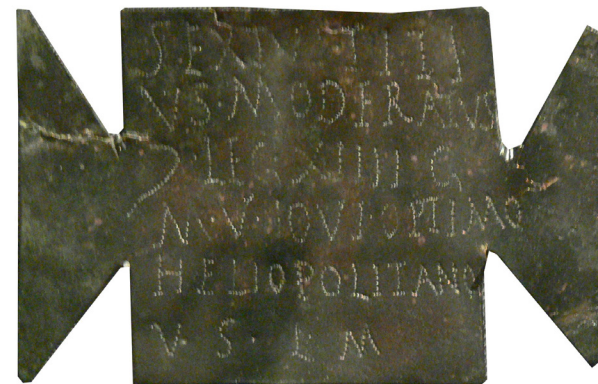 SEXTVS TITI
VS·MODERATVS
Ɔ·LEG·XIIII G
M·V·IOVI·OPTIMO
HELIOPOLITANO
V·S·L·M